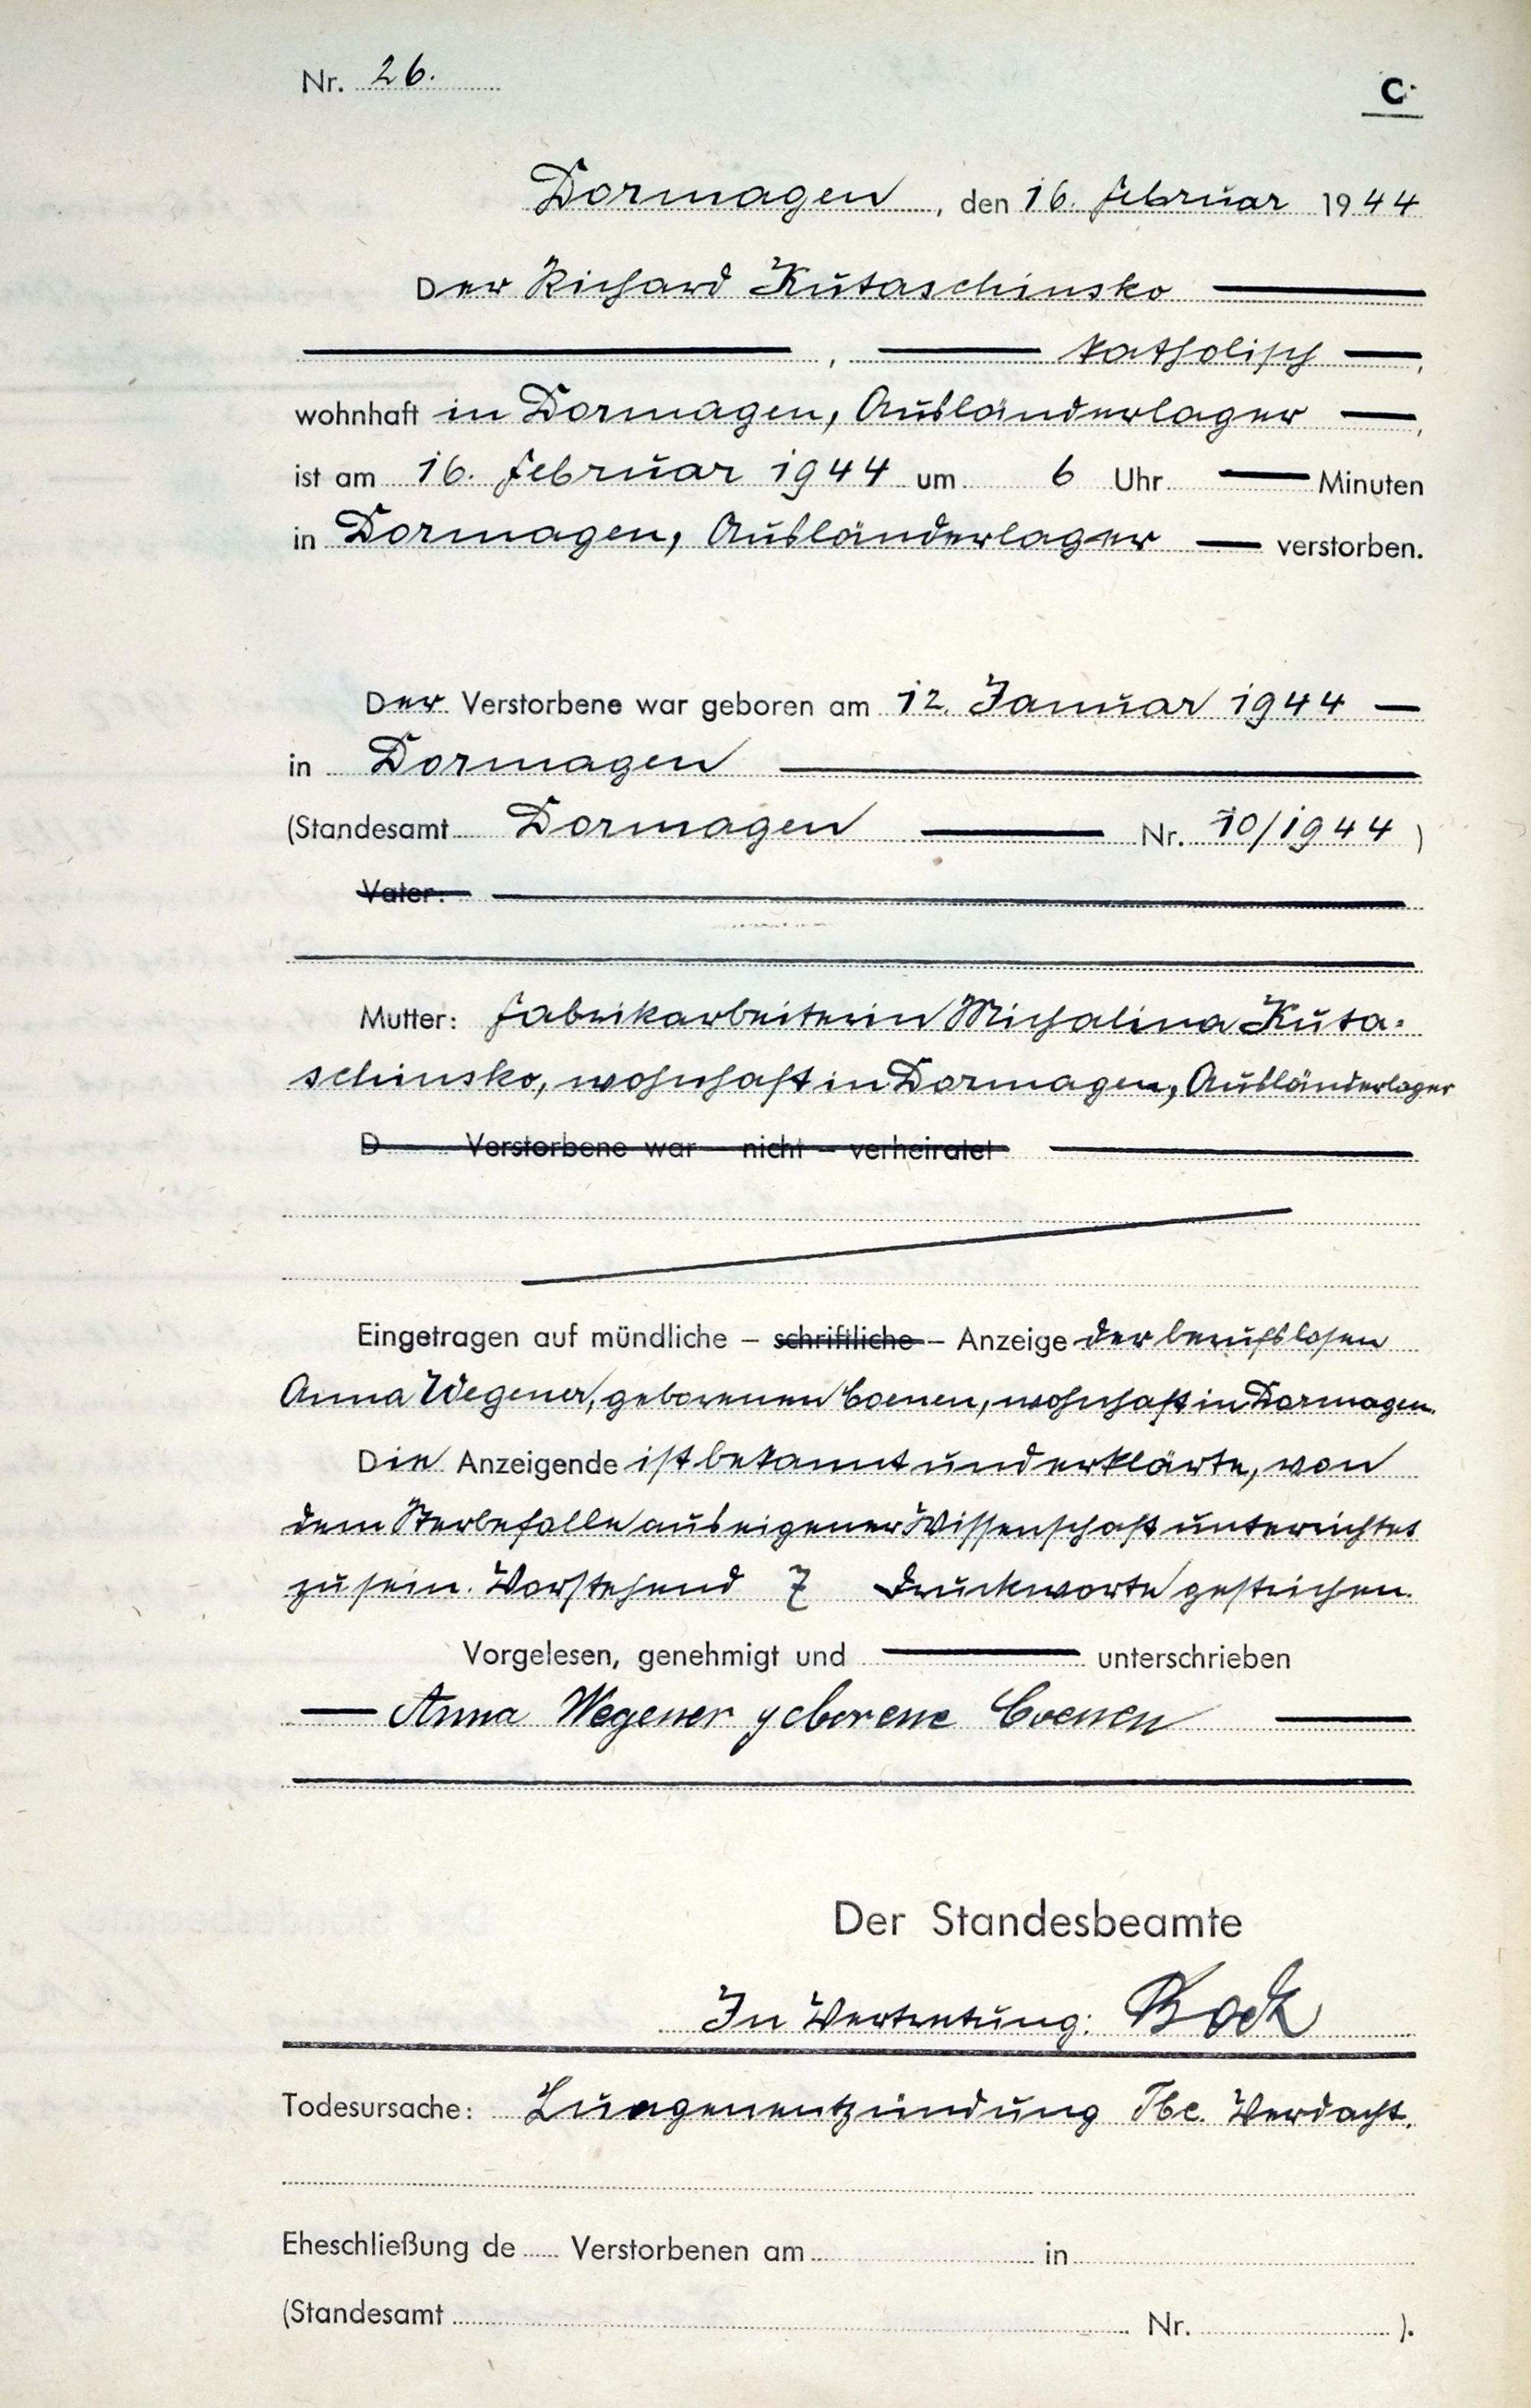 Nr. 26.
C.
Dormagen, den 16. Februar 1944
Der Richard Kutaschinsko
, katholisch,
wohnhaft in Dormagen, Ausländerlager,
ist am 16. Februar 1944 um 6 Uhr Minuten
in Dormagen, Ausländerlager verstorben.
Der Verstorbene war geboren am 12. Januar 1944
in Dormagen
(Standesamt Dormagen Nr. 10/1944)
Vater:
Mutter: Fabrikarbeiterin Michalina Kuta-
schinsko, wohnhaft in Dormagen, Ausländerlager
D Verstorbene war – nicht – verheiratet
Eingetragen auf mündliche – schriftliche – Anzeige der berufslosen
Anna Wegener, geborenen Coenen, wohnhaft in Dormagen.
Die Anzeigende ist bekannt und erklärte, von
dem Sterbefalle aus eigener Wissenschaft unterrichtet
zu sein. Vorstehend 7 Druckworte gestrichen.
Vorgelesen, genehmigt und unterschrieben
Anna Wegener geborene Coenen
Der Standesbeamte
In Vertretung: Bock
Todesursache: Lungenentzündung Tbc. Verdacht.
Eheschließung de Verstorbenen am in
(Standesamt Nr. ).